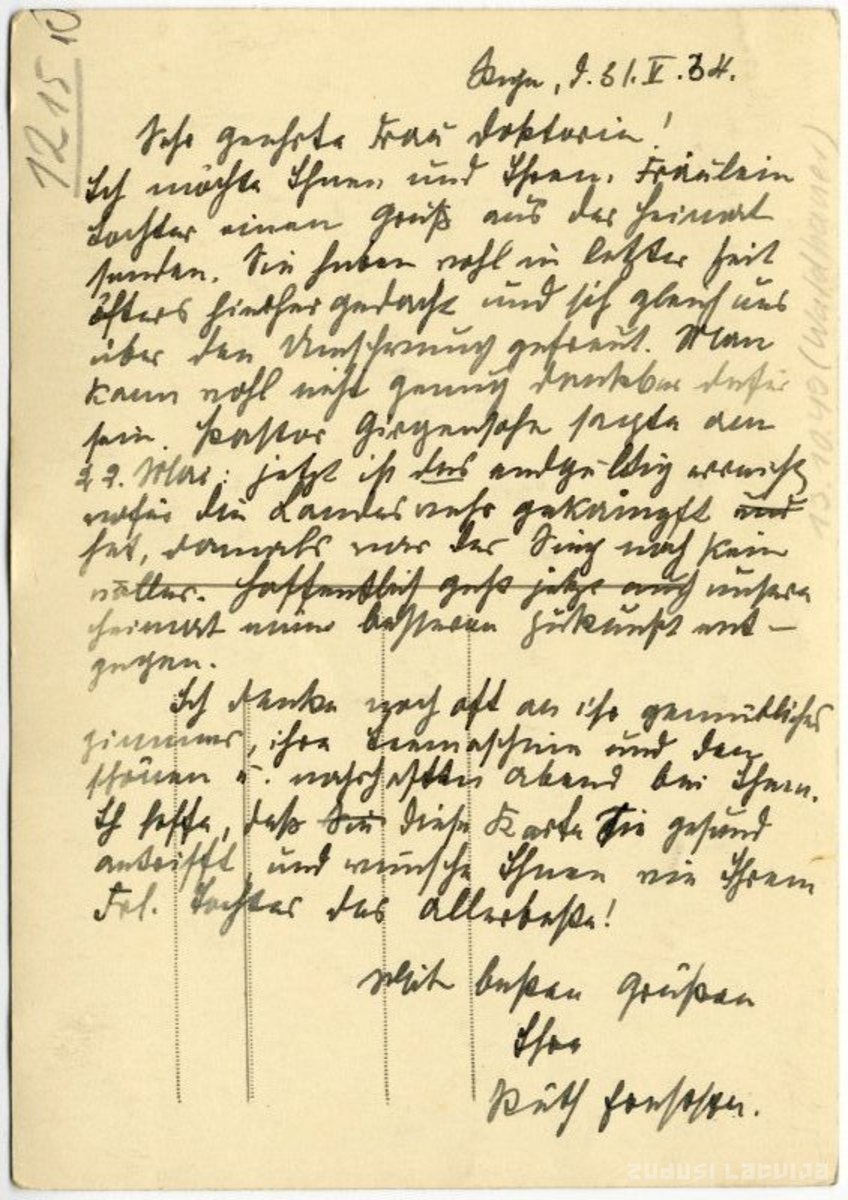 1215 10
Riga, d. 31. V. 34.
Sehr geehrte Frau Doktorin!
Ich möchte Ihnen und Ihrem Fräulein
Tochter einen Gruß aus der Heimat
senden. Sie haben wohl in letzter Zeit
öfters hierher gedacht und sich gleich uns
über den Umschwung gefreut. Man
kann wohl nicht genug dankbar dafür
sein. Pastor Girgensohn sagte am
22. Mai: jetzt ist das endgültig erreicht
wofür die Landeswehr gekämpft und
hat, damals war der Sieg noch kein
voller. Hoffentlich geht jetzt auch unsere
Heimat einer besseren Zukunft ent-
gegen.
Ich denke noch oft an ihr gemütliches
Zimmer, ihre Teemaschine und den
schönen u. nahrhaften Abend bei Ihnen.
Ich hoffe, daß Sie diese Karte Sie gesund
antrifft, und wünsche Ihnen wie Ihrem
Frl. Tochter das Allerbeste!
Mit besten Grüßen
Ihre
Ruth
13.10.43 (Waldhauer)
zudusi Latvija